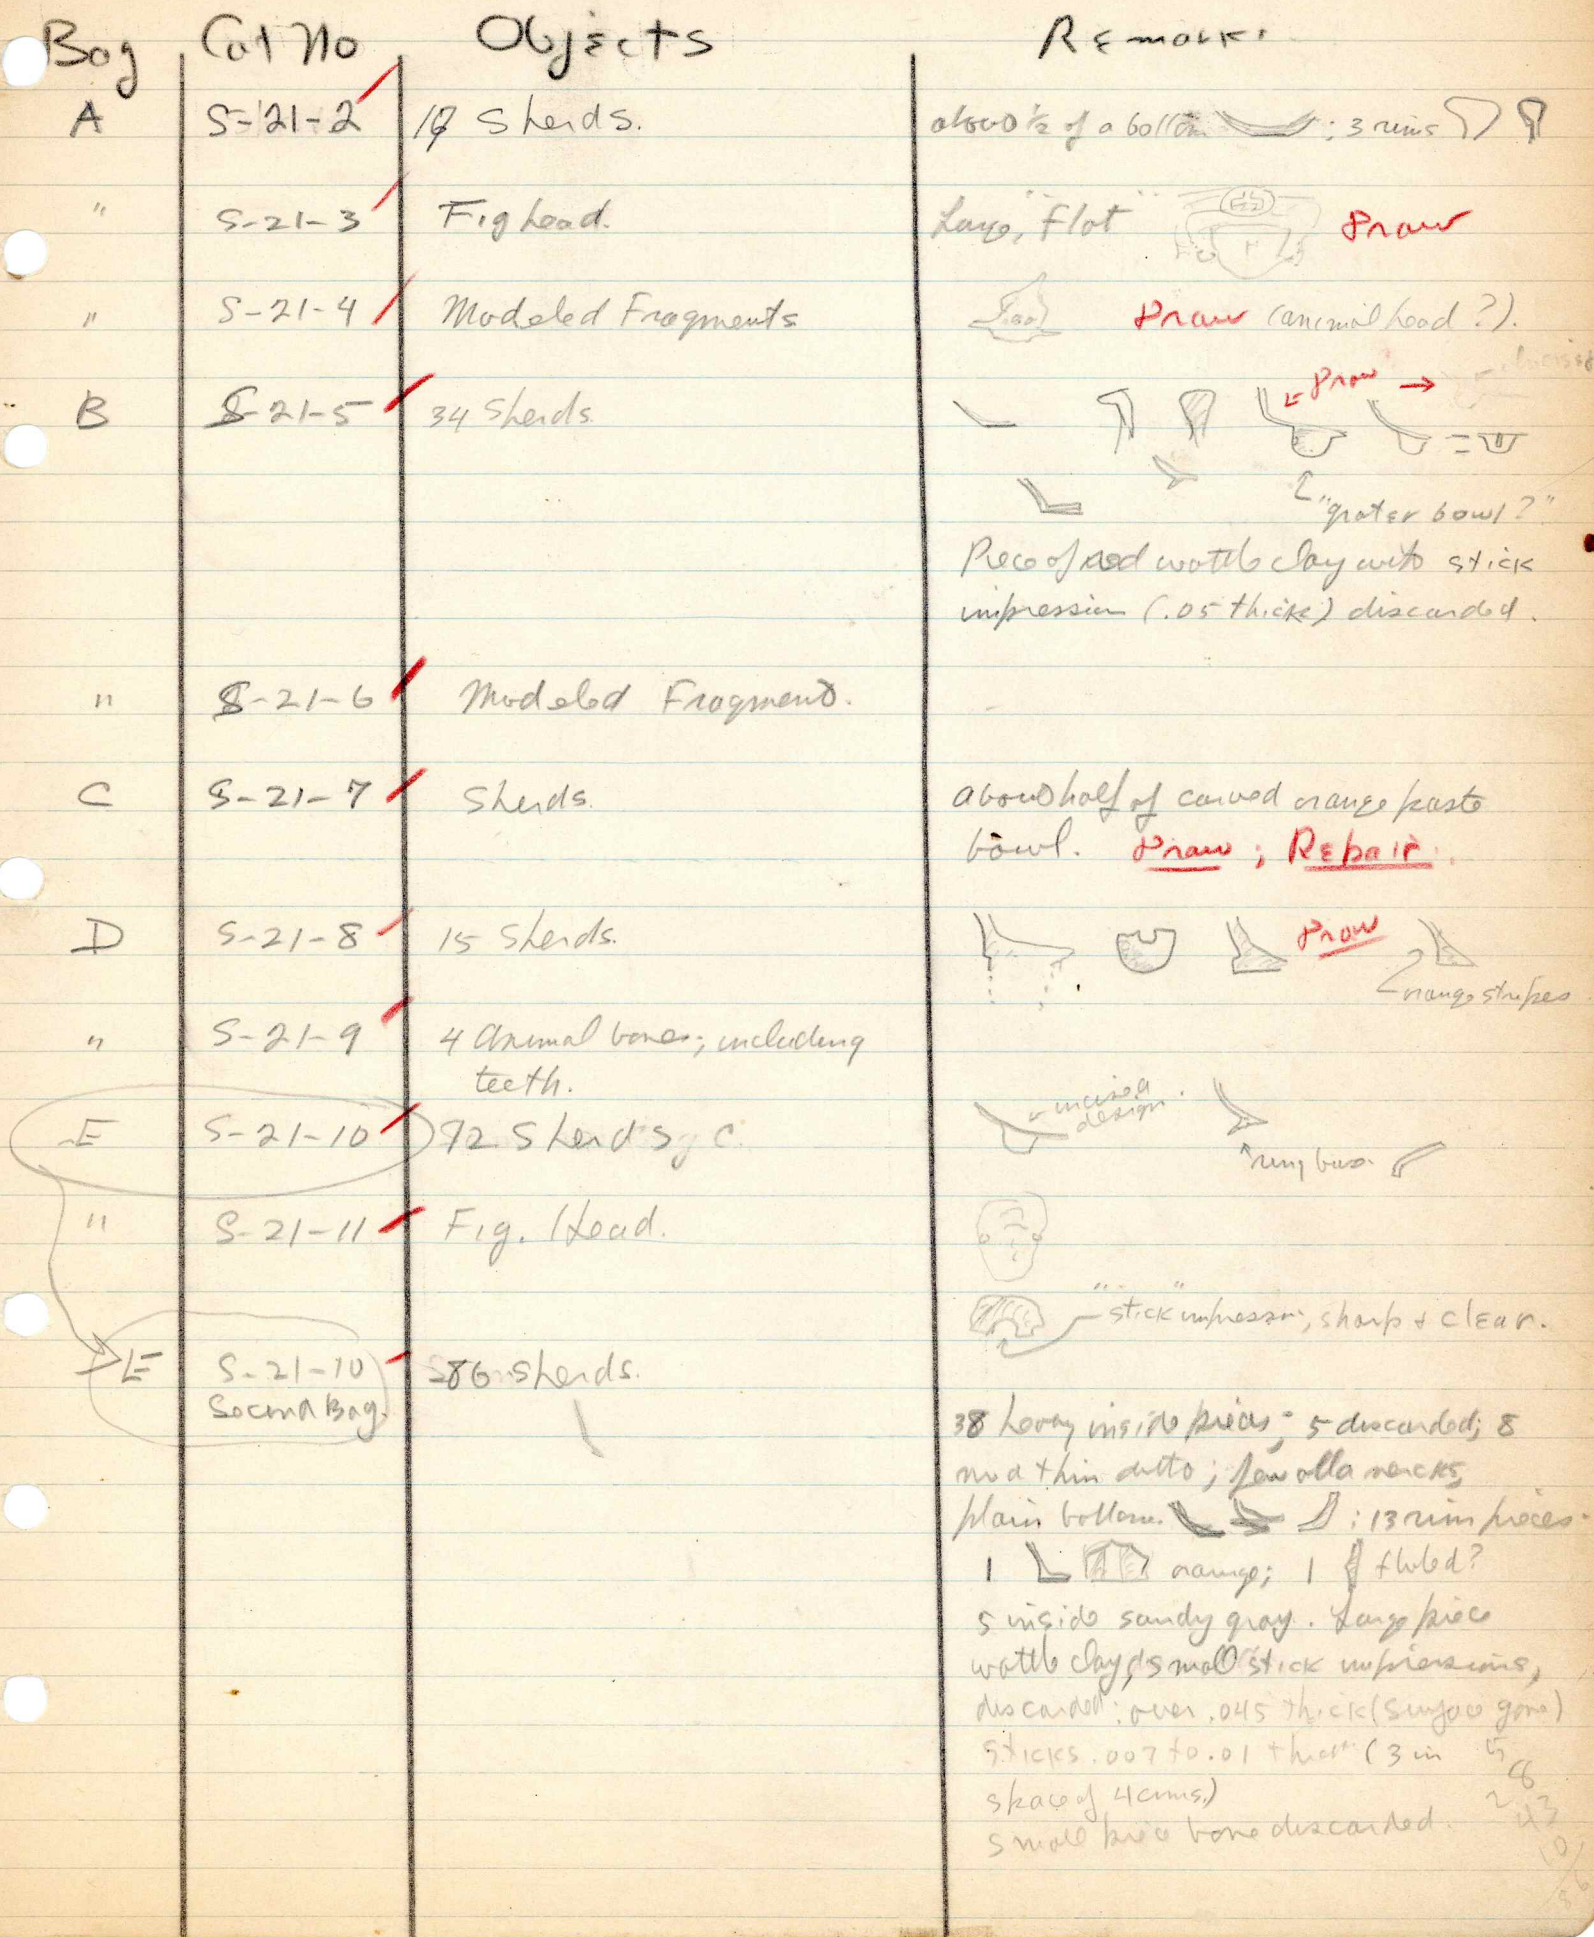 Bag Cat No Objects Remarks
A S-21-2 Sherds. about ½ of a bottom ; 3 rims
" S-21-3 Fig head. Large, "flat" Draw
" S-21-4 Modeled Fragments Draw (animal head?).
B S-21-5 34 Sherds. Draw →
"grater bowl?"
Piece of red wattle clay with stick
impression (.05 thick) discarded.
" S-21-6 Modeled Fragment.
C S-21-7 Sherds. About half of carved orange paste
bowl. Draw ; Repair.
D S-21-8 15 Sherds. Draw
orange stripes
" S-21-9 4 Animal bones; including
teeth.
E S-21-10 72 Sherds incised
design.
ring base.
" S-21-11 Fig. Head.
"stick" impression, sharp & clear.
E S-21-10 286 Sherds.
Second Bag.
38 heavy inside pieces; 5 discarded; 8
med thin ditto; few olla necks,
plain bottoms. ; 13 rim pieces.
1 orange; 1 fluted?
5 inside sandy gray. Large piece
wattle clay, small stick impressions,
discarded: over .045 thick (surface gone)
sticks .007 to .01 thick (3 in
space of 4 cms.)
small piece bone discarded.